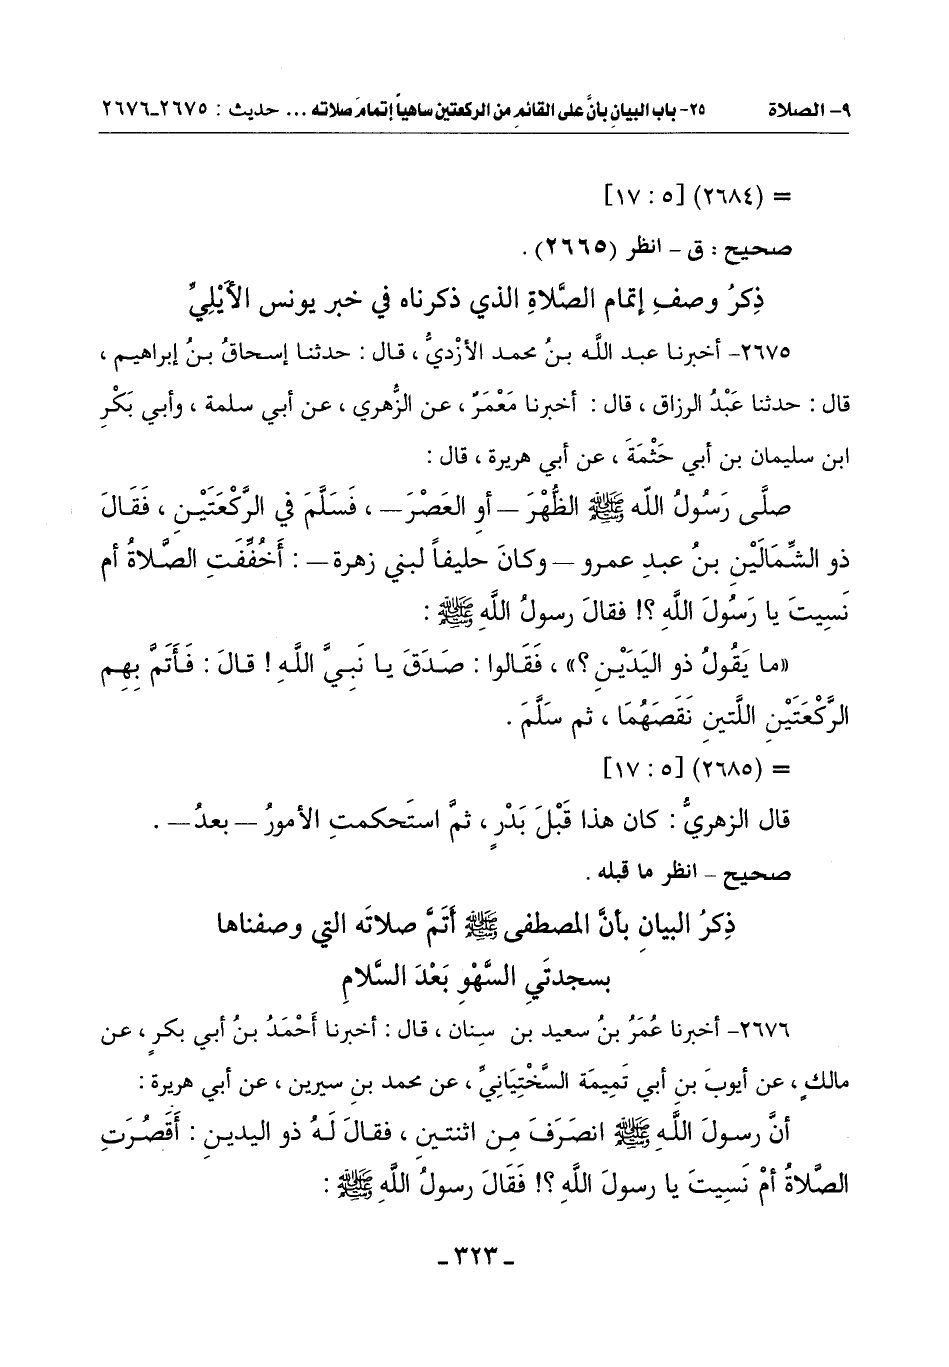 ٩- الصلاة ٢٥- باب البيانِ بأنَّ على القائمِ من الركعتين ساهياً إتمامَ صلاته ... حديث : ٢٦٧٥-٢٦٧٦
= (٢٦٨٤) [٥ : ١٧]
صحيح : ق - انظر (٢٦٦٥) .
ذِكرُ وصفِ إتمام الصَّلاةِ الذي ذكرناه في خبر يونس الأَيْليِّ
٢٦٧٥- أخبرنا عبد اللَّه بنُ محمد الأزْديُّ ، قال : حدثنا إسحاقُ بنُ إبراهيم ،
قال : حدثنا عَبْدُ الرزاق ، قال : أخبرنا مَعْمَرٌ ، عن الزُّهري ، عن أبي سلمة ، وأبي بَكْرِ
ابن سليمان بن أبي حَثْمَةَ ، عن أبي هريرة ، قال :
صلَّى رَسُولُ اللَّه ﷺ الظُّهْرَ — أو العَصْرَ — ، فَسَلَّمَ في الرَّكْعَتَيْنِ ، فَقَالَ
ذو الشِّمَالَيْنِ بنُ عبدِ عمرو — وكانَ حليفاً لبني زهرة — : أَخُفِّفَتِ الصَّلاةُ أم
نَسِيتَ يا رَسُولَ اللَّهِ ؟! فقالَ رسولُ اللَّهِ ﷺ :
«ما يَقُولُ ذو اليَدَيْنِ ؟» ، فَقَالوا : صَدَقَ يا نَبِيَّ اللَّهِ ! قالَ : فَأَتَمَّ بِهِم
الرَّكْعَتَيْنِ اللَّتينِ نَقَصَهُمَا ، ثم سَلَّمَ .
= (٢٦٨٥) [٥ : ١٧]
قال الزهريُّ : كان هذا قَبْلَ بَدْرٍ ، ثمَّ استَحكمتِ الأمورُ — بعدُ — .
صحيح - انظر ما قبله .
ذِكرُ البيانِ بأنَّ المصطفى ﷺ أَتَمَّ صلاتَه التي وصفناها
بسجدتَيِ السَّهْوِ بَعْدَ السَّلامِ
٢٦٧٦- أخبرنا عُمَرُ بنُ سعيد بن سِنان ، قال : أخبرنا أَحْمَدُ بنُ أبي بكرٍ ، عن
مالكٍ ، عن أيوبَ بنِ أبي تَمِيمَةَ السَّخْتِيَانيِّ ، عن محمد بنِ سيرين ، عن أبي هريرة :
أنَّ رسولَ اللَّهِ ﷺ انصَرَفَ مِن اثنتينِ ، فقالَ لَهُ ذو اليدينِ : أَقَصُرَتِ
الصَّلاةُ أمْ نَسِيتَ يا رسولَ اللَّهِ ؟! فَقَالَ رسولُ اللَّهِ ﷺ :
- ٣٢٣ -